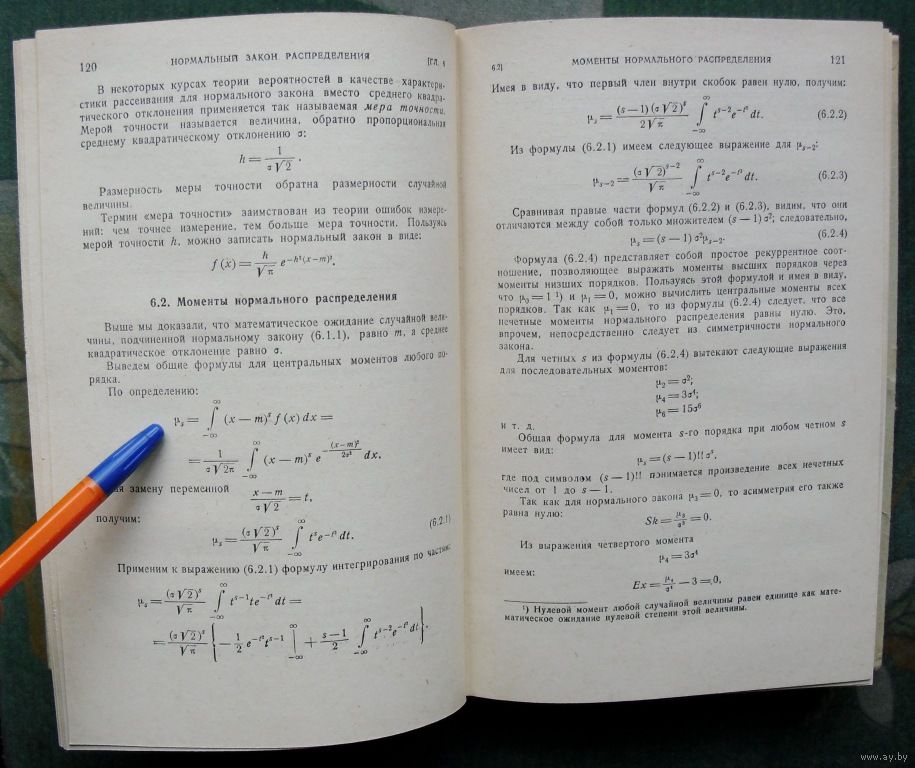 120 НОРМАЛЬНЫЙ ЗАКОН РАСПРЕДЕЛЕНИЯ [ГЛ.
В некоторых курсах теории вероятностей в качестве характери-
стики рассеивания для нормального закона вместо среднего квадра-
тического отклонения применяется так называемая мера точности.
Мерой точности называется величина, обратно пропорциональная
среднему квадратическому отклонению σ:
h = 1/(σ√2).
Размерность меры точности обратна размерности случайной
величины.
Термин «мера точности» заимствован из теории ошибок измере-
ний: чем точнее измерение, тем больше мера точности. Пользуясь
мерой точности h, можно записать нормальный закон в виде:
f(x) = h/√π e^{−h²(x−m)²}.
6.2. Моменты нормального распределения
Выше мы доказали, что математическое ожидание случайной вели-
чины, подчиненной нормальному закону (6.1.1), равно m, а среднее
квадратическое отклонение равно σ.
Выведем общие формулы для центральных моментов любого по-
рядка.
По определению:
μ_s = ∫_{−∞}^{∞} (x − m)^s f(x) dx =
= 1/(σ√2π) ∫_{−∞}^{∞} (x − m)^s e^{−(x−m)²/2σ²} dx.
замену переменной (x − m)/(σ√2) = t,
получим:
μ_s = (σ√2)^s/√π ∫_{−∞}^{∞} t^s e^{−t²} dt. (6.2.1)
Применим к выражению (6.2.1) формулу интегрирования по частям:
μ_s = (σ√2)^s/√π ∫_{−∞}^{∞} t^{s−1} t e^{−t²} dt =
= (σ√2)^s/√π { −1/2 e^{−t²} t^{s−1} |_{−∞}^{∞} + (s−1)/2 ∫_{−∞}^{∞} t^{s−2} e^{−t²} dt }.
6.2] МОМЕНТЫ НОРМАЛЬНОГО РАСПРЕДЕЛЕНИЯ 121
Имея в виду, что первый член внутри скобок равен нулю, получим:
μ_s = (s−1)(σ√2)^s/(2√π) ∫_{−∞}^{∞} t^{s−2} e^{−t²} dt. (6.2.2)
Из формулы (6.2.1) имеем следующее выражение для μ_{s−2}:
μ_{s−2} = (σ√2)^{s−2}/√π ∫_{−∞}^{∞} t^{s−2} e^{−t²} dt. (6.2.3)
Сравнивая правые части формул (6.2.2) и (6.2.3), видим, что они
отличаются между собой только множителем (s − 1) σ²; следовательно,
μ_s = (s − 1) σ² μ_{s−2}. (6.2.4)
Формула (6.2.4) представляет собой простое рекуррентное соот-
ношение, позволяющее выражать моменты высших порядков через
моменты низших порядков. Пользуясь этой формулой и имея в виду,
что μ₀ = 1 ¹) и μ₁ = 0, можно вычислить центральные моменты всех
порядков. Так как μ₁ = 0, то из формулы (6.2.4) следует, что все
нечетные моменты нормального распределения равны нулю. Это,
впрочем, непосредственно следует из симметричности нормального
закона.
Для четных s из формулы (6.2.4) вытекают следующие выражения
для последовательных моментов:
μ₂ = σ²;
μ₄ = 3σ⁴;
μ₆ = 15σ⁶
и т. д.
Общая формула для момента s-го порядка при любом четном s
имеет вид:
μ_s = (s − 1)!! σ^s,
где под символом (s − 1)!! понимается произведение всех нечетных
чисел от 1 до s − 1.
Так как для нормального закона μ₃ = 0, то асимметрия его также
равна нулю:
Sk = μ₃/σ³ = 0.
Из выражения четвертого момента
μ₄ = 3σ⁴
имеем:
Ex = μ₄/σ⁴ − 3 = 0.
¹) Нулевой момент любой случайной величины равен единице как мате-
матическое ожидание нулевой степени этой величины.
www.ay.by